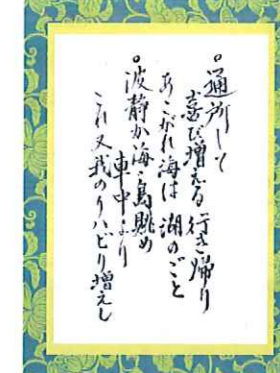 ◦通所して
喜び増える行き帰り
あこがれ海は湖のごと
◦波静か海・島眺め
車中より
これ又我のリハビリ増えし